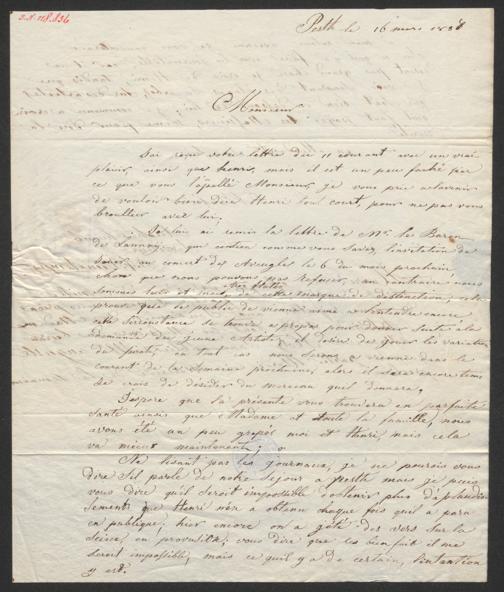 Pesth le 16 mars 1838
Monsieur
J'ai reçu votre lettre du 11 courant avec un vrai
plaisir, ainsi que henri, mais il est un peu faché par
ce que vous l'apellé Monsieur, je vous prie a l'avenir
de vouloir bien dire Henri tout court, pour ne pas vous
brouiller avec lui.
Je lui ai remis la lettre de Mr le Baron
de Lannoy, qui contien comme vous savez, l'invitation de
jouer au concert des Aveugles le 6 du mois prochain,
chose que nous pouvons pas refuser, au contraire nous
sommes lui et moi très flattés de cette marque de distinction, cela
prouve que le publie de vienne aime a l'entendre encore
cette circonstance se trouve a propos pour donner suite a la
demande du jeune Artiste, il désire de jouer les variations
du pirate, en tout cas nous serons a vienne dans le
courant de la semaine prochaine, alors il sera encore tems
je crois de décider du morceau qu'il donnera.
J'espere que la présente vous trouvera en parfaite
santé ainsi que Madame et toute la famille, nous
avons été un peu gripés moi et Henri, mais cela
va mieux maintenant,
Ne lisant pas les journaux, je ne pourois vous
dire s'il parle de notre séjour a Pesth mais je puis
vous dire qu'il seroit impossible d'obtenir plus d'aplaudis
sement que Henri n'en a obtenu chaque fois qu'il a paru
en publique, hier encore on a jeté des vers sur la
scène, en provenance, vous dire que les bien fait il me
seroit impossible, mais ce qu'il y a de certain, l'intantion
y est.
S.N. 118.836